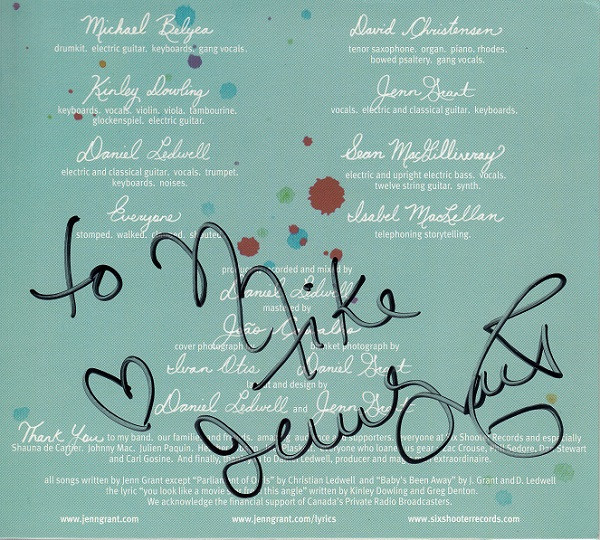 Michael Belyea
drumkit. electric guitar. keyboards. gang vocals.
David Christensen
tenor saxophone. organ. piano. rhodes.
bowed psaltery. gang vocals.
Kinley Dowling
keyboards. vocals. violin. viola. tambourine.
glockenspiel. electric guitar.
Jenn Grant
vocals. electric and classical guitar. keyboards.
Daniel Ledwell
electric and classical guitar. vocals. trumpet.
keyboards. noises.
Sean MacGilliveray
electric and upright electric bass. vocals.
twelve string guitar. synth.
Everyone
stomped. walked. clapped. shouted.
Isabel MacLellan
telephoning storytelling.
To Mike
produced recorded and mixed by
Daniel Ledwell
mastered by
João Carvalho
cover photograph by
booklet photograph by
Ivan Otis
Daniel Grant
layout and design by
Daniel Ledwell and Jenn Grant
Jenn Grant
Thank You to my band. our families and friends. amazing audience and supporters. everyone at Six Shooter Records and especially
Shauna de Cartier. Johnny Mac. Julien Paquin. Everyone who loaned us gear Crouse, Phil Sedore, Dan Stewart
and Carl Gosine. And finally, thank you to Daniel Ledwell, producer and magician extraordinaire.
all songs written by Jenn Grant except "Parliament of Owls" by Christian Ledwell and "Baby's Been Away" by J. Grant and D. Ledwell
the lyric "you look like a movie star from this angle" written by Kinley Dowling and Greg Denton.
We acknowledge the financial support of Canada's Private Radio Broadcasters.
www.jenngrant.com
www.jenngrant.com/lyrics
www.sixshooterrecords.com